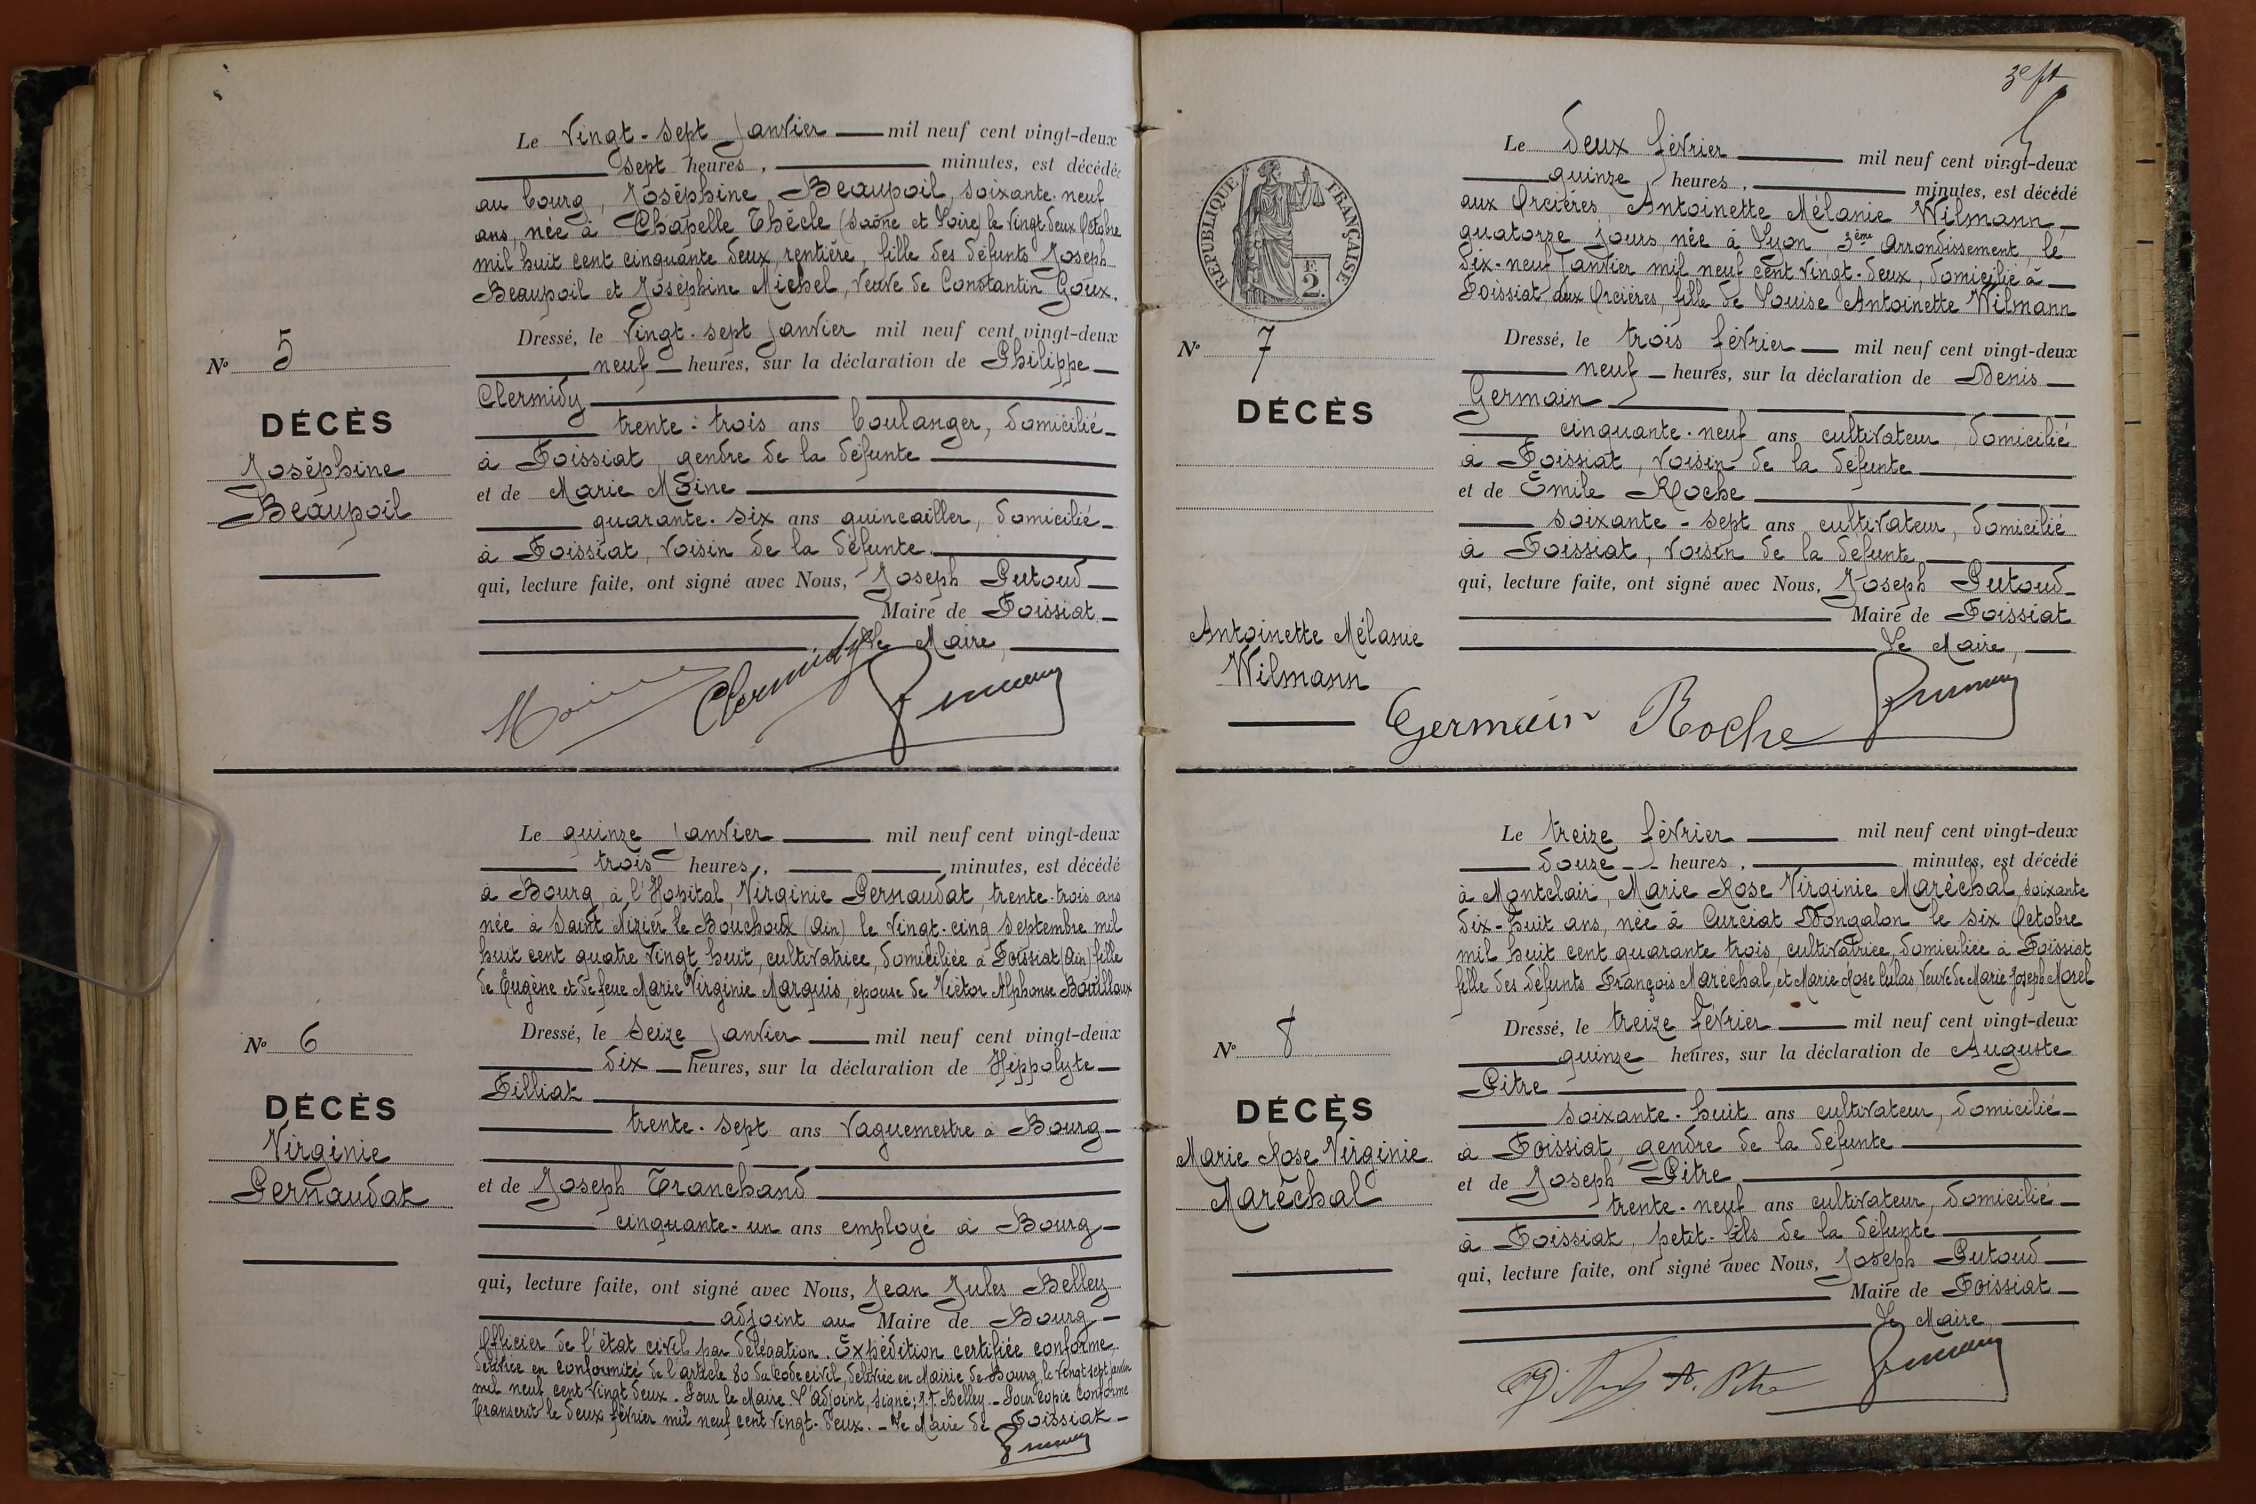 Le Vingt-sept Janvier mil neuf cent vingt-deux
sept heures, minutes, est décédée
au bourg, Joséphine Beaupoil, soixante-neuf
ans, née à Chapelle Thècle (Saône et Loire) le vingt-deux Octobre
mil huit cent cinquante deux, rentière, fille des défunts Joseph
Beaupoil et Joséphine Michel, Veuve de Constantin Goux.
Dressé, le Vingt-sept Janvier mil neuf cent vingt-deux
neuf heures, sur la déclaration de Philippe
Clermidy
trente-trois ans boulanger, domicilié
à Foissiat, gendre de la défunte
et de Marie Moine
quarante-six ans quincailler, domicilié
à Foissiat, voisin de la défunte
qui, lecture faite, ont signé avec Nous, Joseph Putoud
Maire de Foissiat
Le Maire,
Moine Clermidy
No 5
DÉCÈS
Joséphine
Beaupoil
Le quinze Janvier mil neuf cent vingt-deux
trois heures, minutes, est décédé
à Bourg, à l'Hopital, Virginie Pernaudat, trente-trois ans
née à Saint Nizier le Bouchoux (Ain) le vingt-cinq Septembre mil
huit cent quatre vingt huit, cultivatrice, domiciliée à Foissiat (Ain) fille
de Eugène et de feue Marie Virginie Marquis, épouse de Victor Alphonse Bouilloux
Dressé, le Seize Janvier mil neuf cent vingt-deux
dix heures, sur la déclaration de Hippolyte
Filliat
trente-sept ans vaguemestre à Bourg
et de Joseph Tranchand
cinquante-un ans employé à Bourg
qui, lecture faite, ont signé avec Nous, Jean Jules Belley
adjoint au Maire de Bourg
Officier de l'état civil par délégation. Expédition certifiée conforme
délivrée en conformité de l'article 80 du code civil, délivrée en Mairie de Bourg, le vingt-sept janvier
mil neuf cent vingt deux. Pour le Maire L'adjoint, signé: J.J. Belley - Pour copie conforme
Transcrit le deux février mil neuf cent vingt-deux. - Le Maire de Foissiat
No 6
DÉCÈS
Virginie
Pernaudat
Le deux février mil neuf cent vingt-deux
quinze heures, minutes, est décédé
aux Orcières, Antoinette Mélanie Wilmann
quatorze jours, née à Lyon 3ème arrondissement, le
dix-neuf Janvier mil neuf cent vingt-deux, domicilié à
Foissiat aux Orcières, fille de Louise Antoinette Wilmann
Dressé, le trois février mil neuf cent vingt-deux
neuf heures, sur la déclaration de Denis
Germain
cinquante-neuf ans, cultivateur, domicilié
à Foissiat, voisin de la défunte
et de Emile Roche
soixante-sept ans, cultivateur, domicilié
à Foissiat, voisin de la défunte
qui, lecture faite, ont signé avec Nous, Joseph Putoud
Maire de Foissiat
Le Maire,
Germain Roche
RÉPUBLIQUE FRANÇAISE
F.
2.
No 7
DÉCÈS
Antoinette Mélanie
Wilmann
Le treize février mil neuf cent vingt-deux
douze heures, minutes, est décédé
à Montclair, Marie Rose Virginie Maréchal, soixante
dix-huit ans, née à Curciat Dongalon le six Octobre
mil huit cent quarante trois, cultivatrice, domiciliée à Foissiat
fille des défunts François Maréchal, et Marie Rose Culas, Veuve de Marie Joseph Morel
Dressé, le treize février mil neuf cent vingt-deux
quinze heures, sur la déclaration de Auguste
Pitre
soixante-huit ans cultivateur, domicilié
à Foissiat, gendre de la défunte
et de Joseph Pitre
trente-neuf ans cultivateur, domicilié
à Foissiat, petit-fils de la défunte
qui, lecture faite, ont signé avec Nous, Joseph Putoud
Maire de Foissiat
Le Maire,
A. Pitre
No 8
DÉCÈS
Marie Rose Virginie
Maréchal